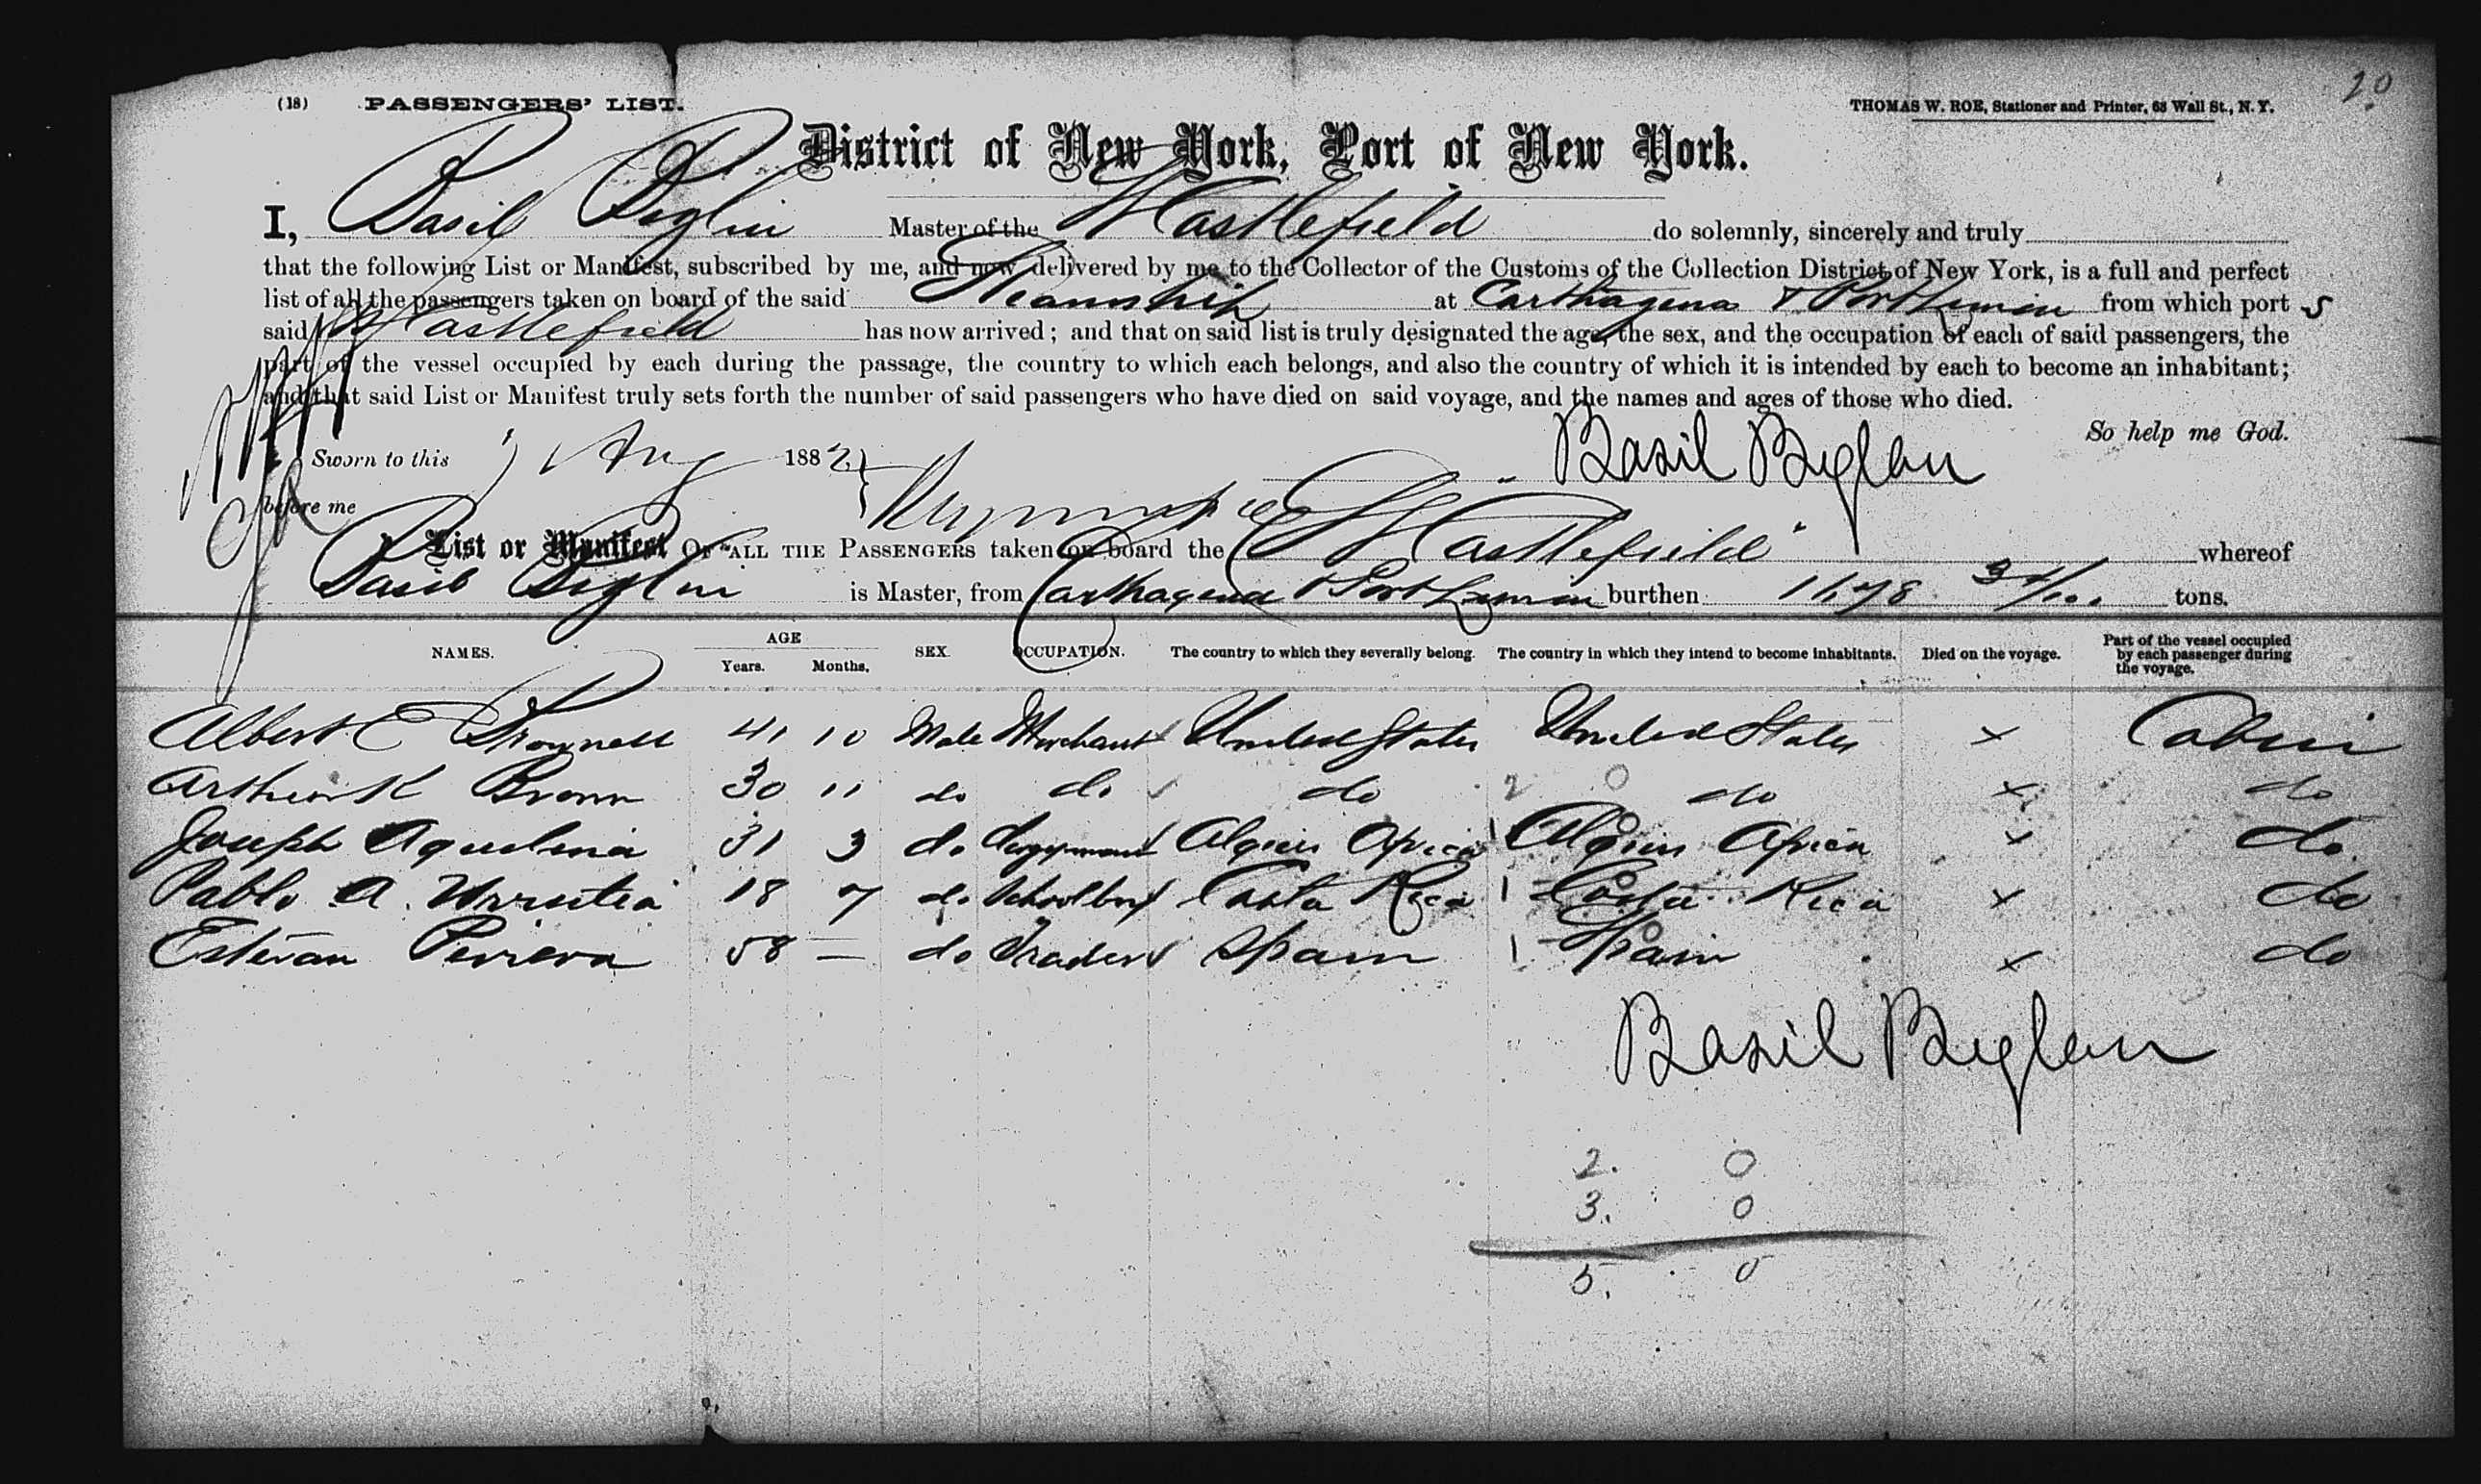 20
(18) PASSENGERS' LIST.
THOMAS W. ROE, Stationer and Printer, 63 Wall St., N. Y.
District of New York, Port of New York.
I, Basil Biglin Master of the Castlefield do solemnly, sincerely and truly
that the following List or Manifest, subscribed by me, and now delivered by me to the Collector of the Customs of the Collection District of New York, is a full and perfect
list of all the passengers taken on board of the said Steamship at Carthagena & Port Limon from which port s
said Castlefield has now arrived; and that on said list is truly designated the age, the sex, and the occupation of each of said passengers, the
part of the vessel occupied by each during the passage, the country to which each belongs, and also the country of which it is intended by each to become an inhabitant;
and that said List or Manifest truly sets forth the number of said passengers who have died on said voyage, and the names and ages of those who died.
So help me God.
Sworn to this Aug 1882
Basil Biglen
before me
List or Manifest OF ALL THE PASSENGERS taken on board the "Castlefield" whereof
Basil Biglin is Master, from Carthagena & Port Limon burthen 34/100 tons.
NAMES. AGE Years. Months. SEX. OCCUPATION. The country to which they severally belong. The country in which they intend to become inhabitants. Died on the voyage. Part of the vessel occupied by each passenger during the voyage.
Albert E Brownell 41 10 Male Merchant United States United States x Cabin
Arthur K Brown 30 11 do do do 2 0 do x do
Joseph Aquilina 31 3 do Algiers Africa 1 Algiers Africa x do
Pablo A. Urrutia 18 7 do Schoolboy Costa Rica 1 Costa Rica x do
Estevan Perrera 58 — do Trader Spain 1 Spain x do
Basil Biglen
2. 0
3. 0
5. 0